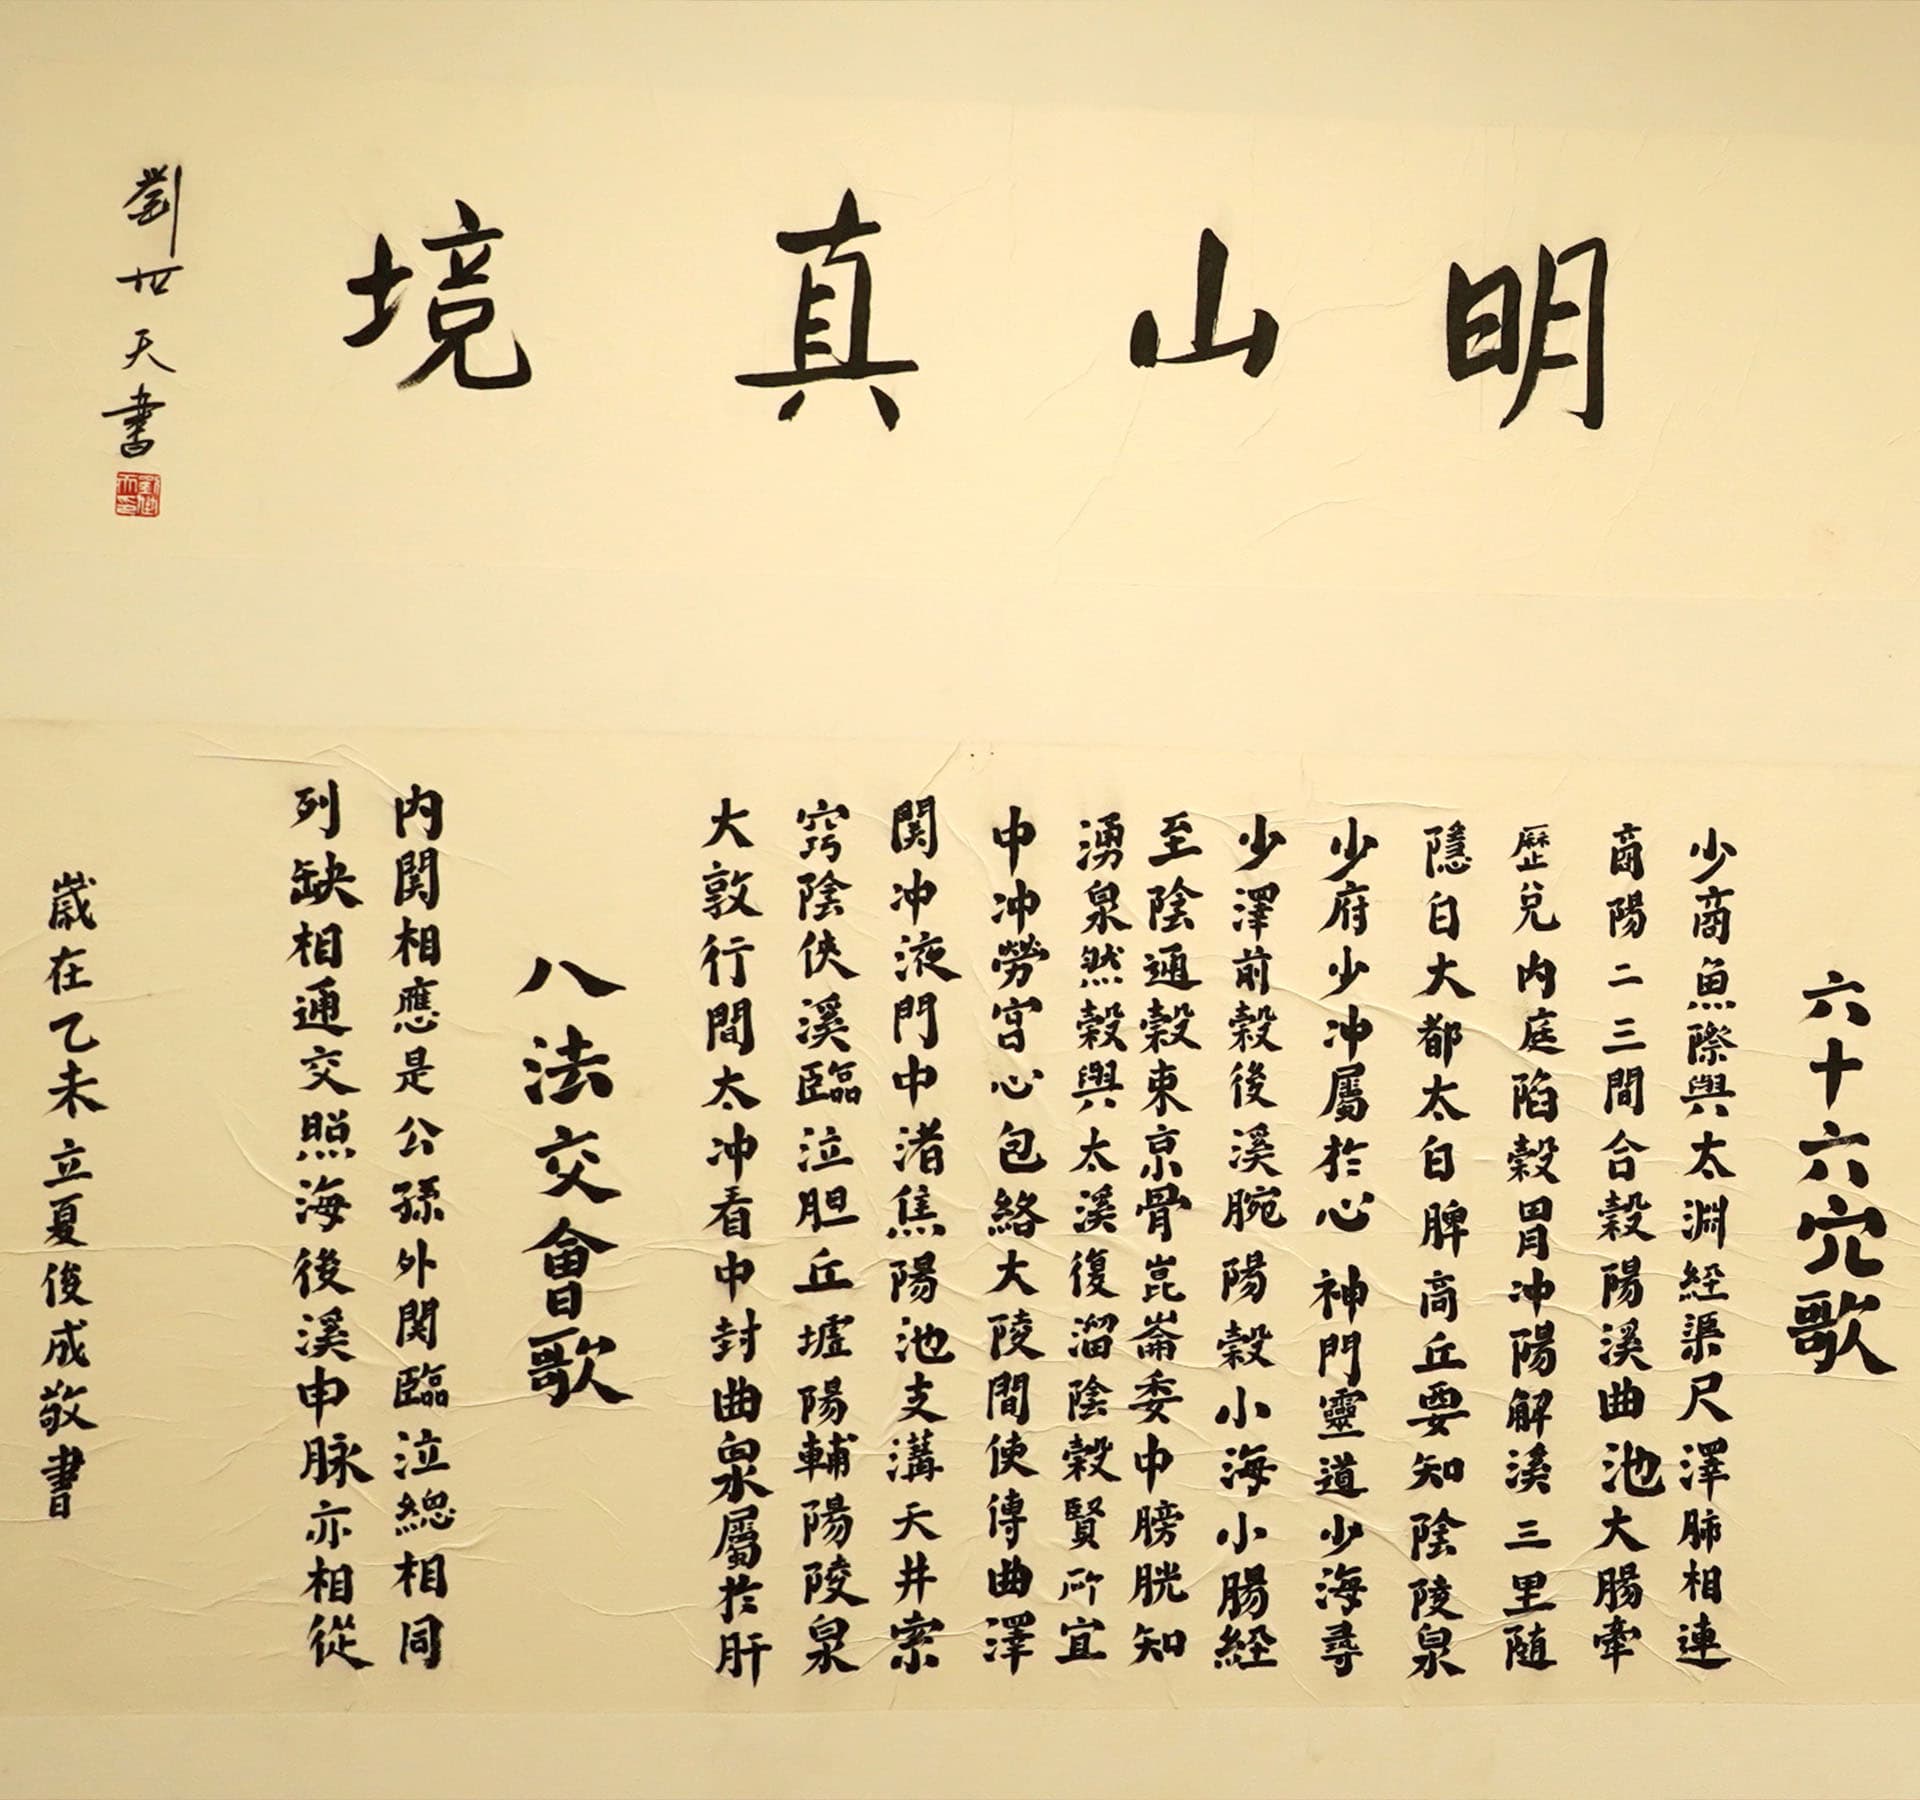 明山真境
劉世天書
六十六穴歌
少商魚際與太淵經渠尺澤肺相連
商陽二三間合穀陽溪曲池大腸牽
歷兌內庭陷穀胃冲陽解溪三里随
隱白大都太白脾商丘要知陰陵泉
少府少冲屬於心神門靈道少海尋
少澤前穀後溪腕陽穀小海小腸經
至陰通穀束京骨崑崙委中膀胱知
湧泉然穀與太溪復溜陰穀賢所宜
中冲勞宮心包絡大陵間使傳曲澤
関冲液門中渚焦陽池支溝天井索
竅陰俠溪臨泣胆丘墟陽輔陽陵泉
大敦行間太冲看中封曲泉屬於肝
八法交會歌
内関相應是公孫外関臨泣總相同
列缺相通交照海後溪申脉亦相從
歲在乙未立夏俊成敬書